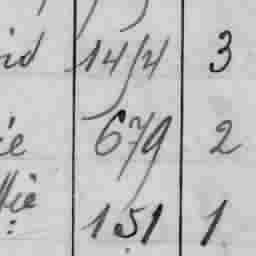 id 14/4 3
ie 679 2
ttie 151 1